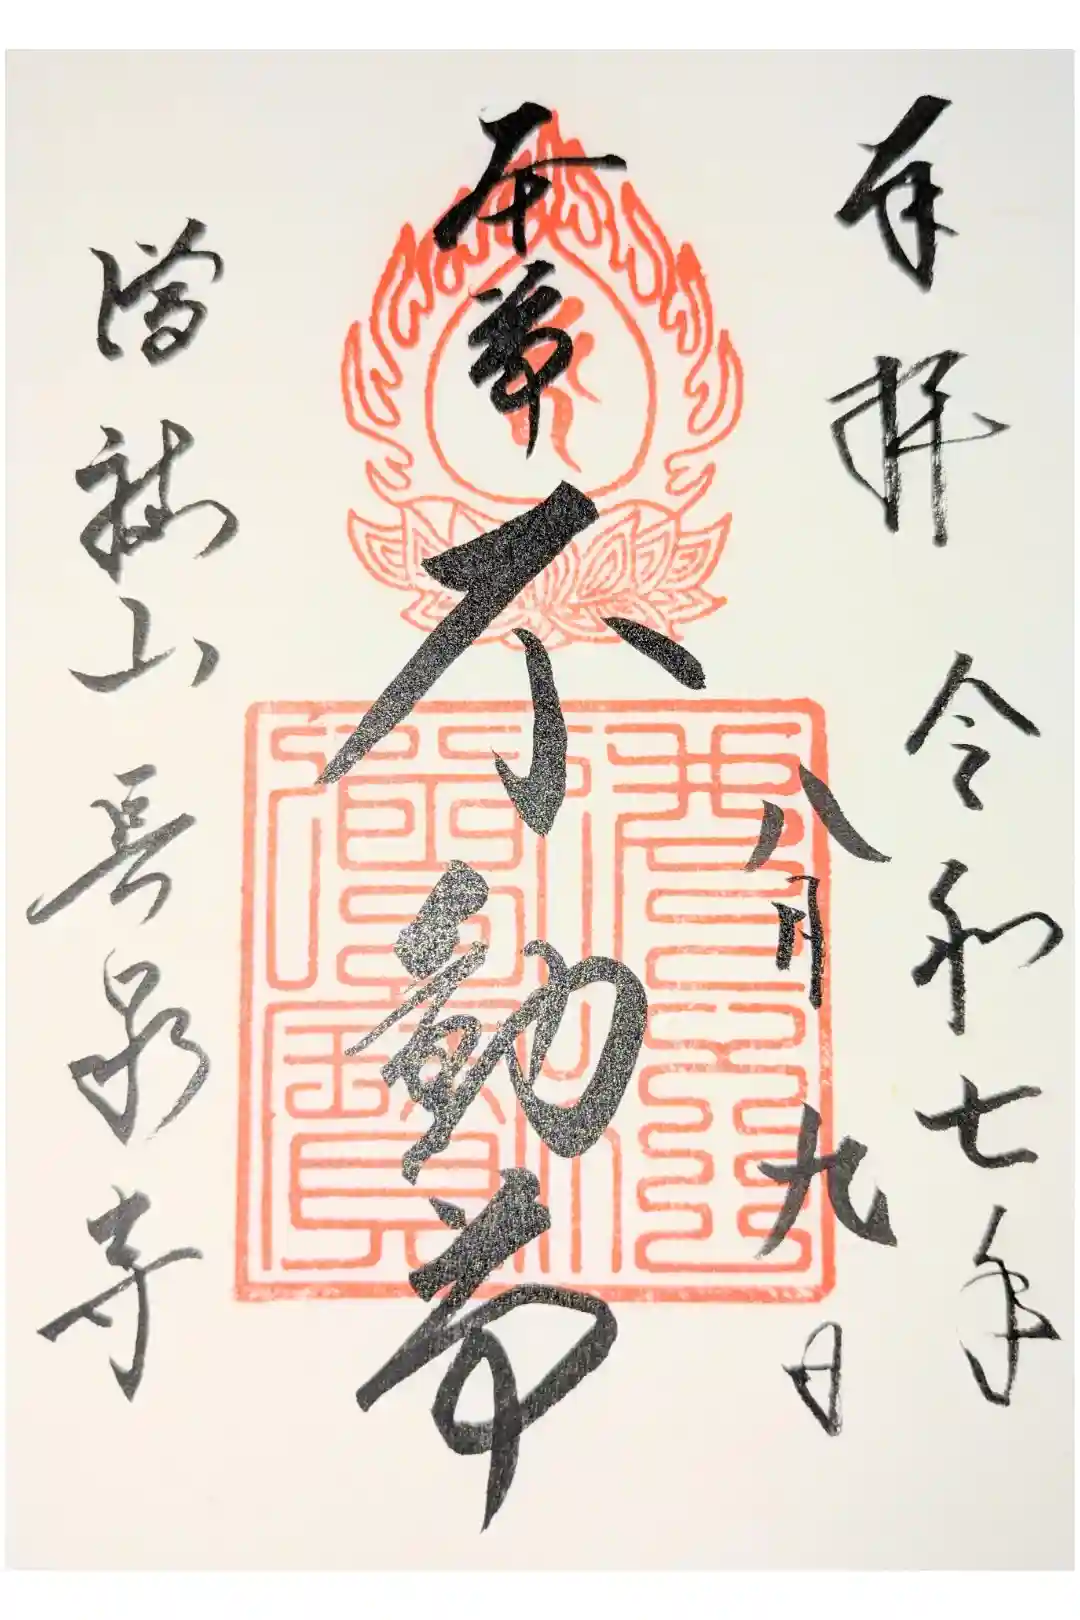 奉拝 令和七年
八月九日
本尊 不動尊
山 長泉寺